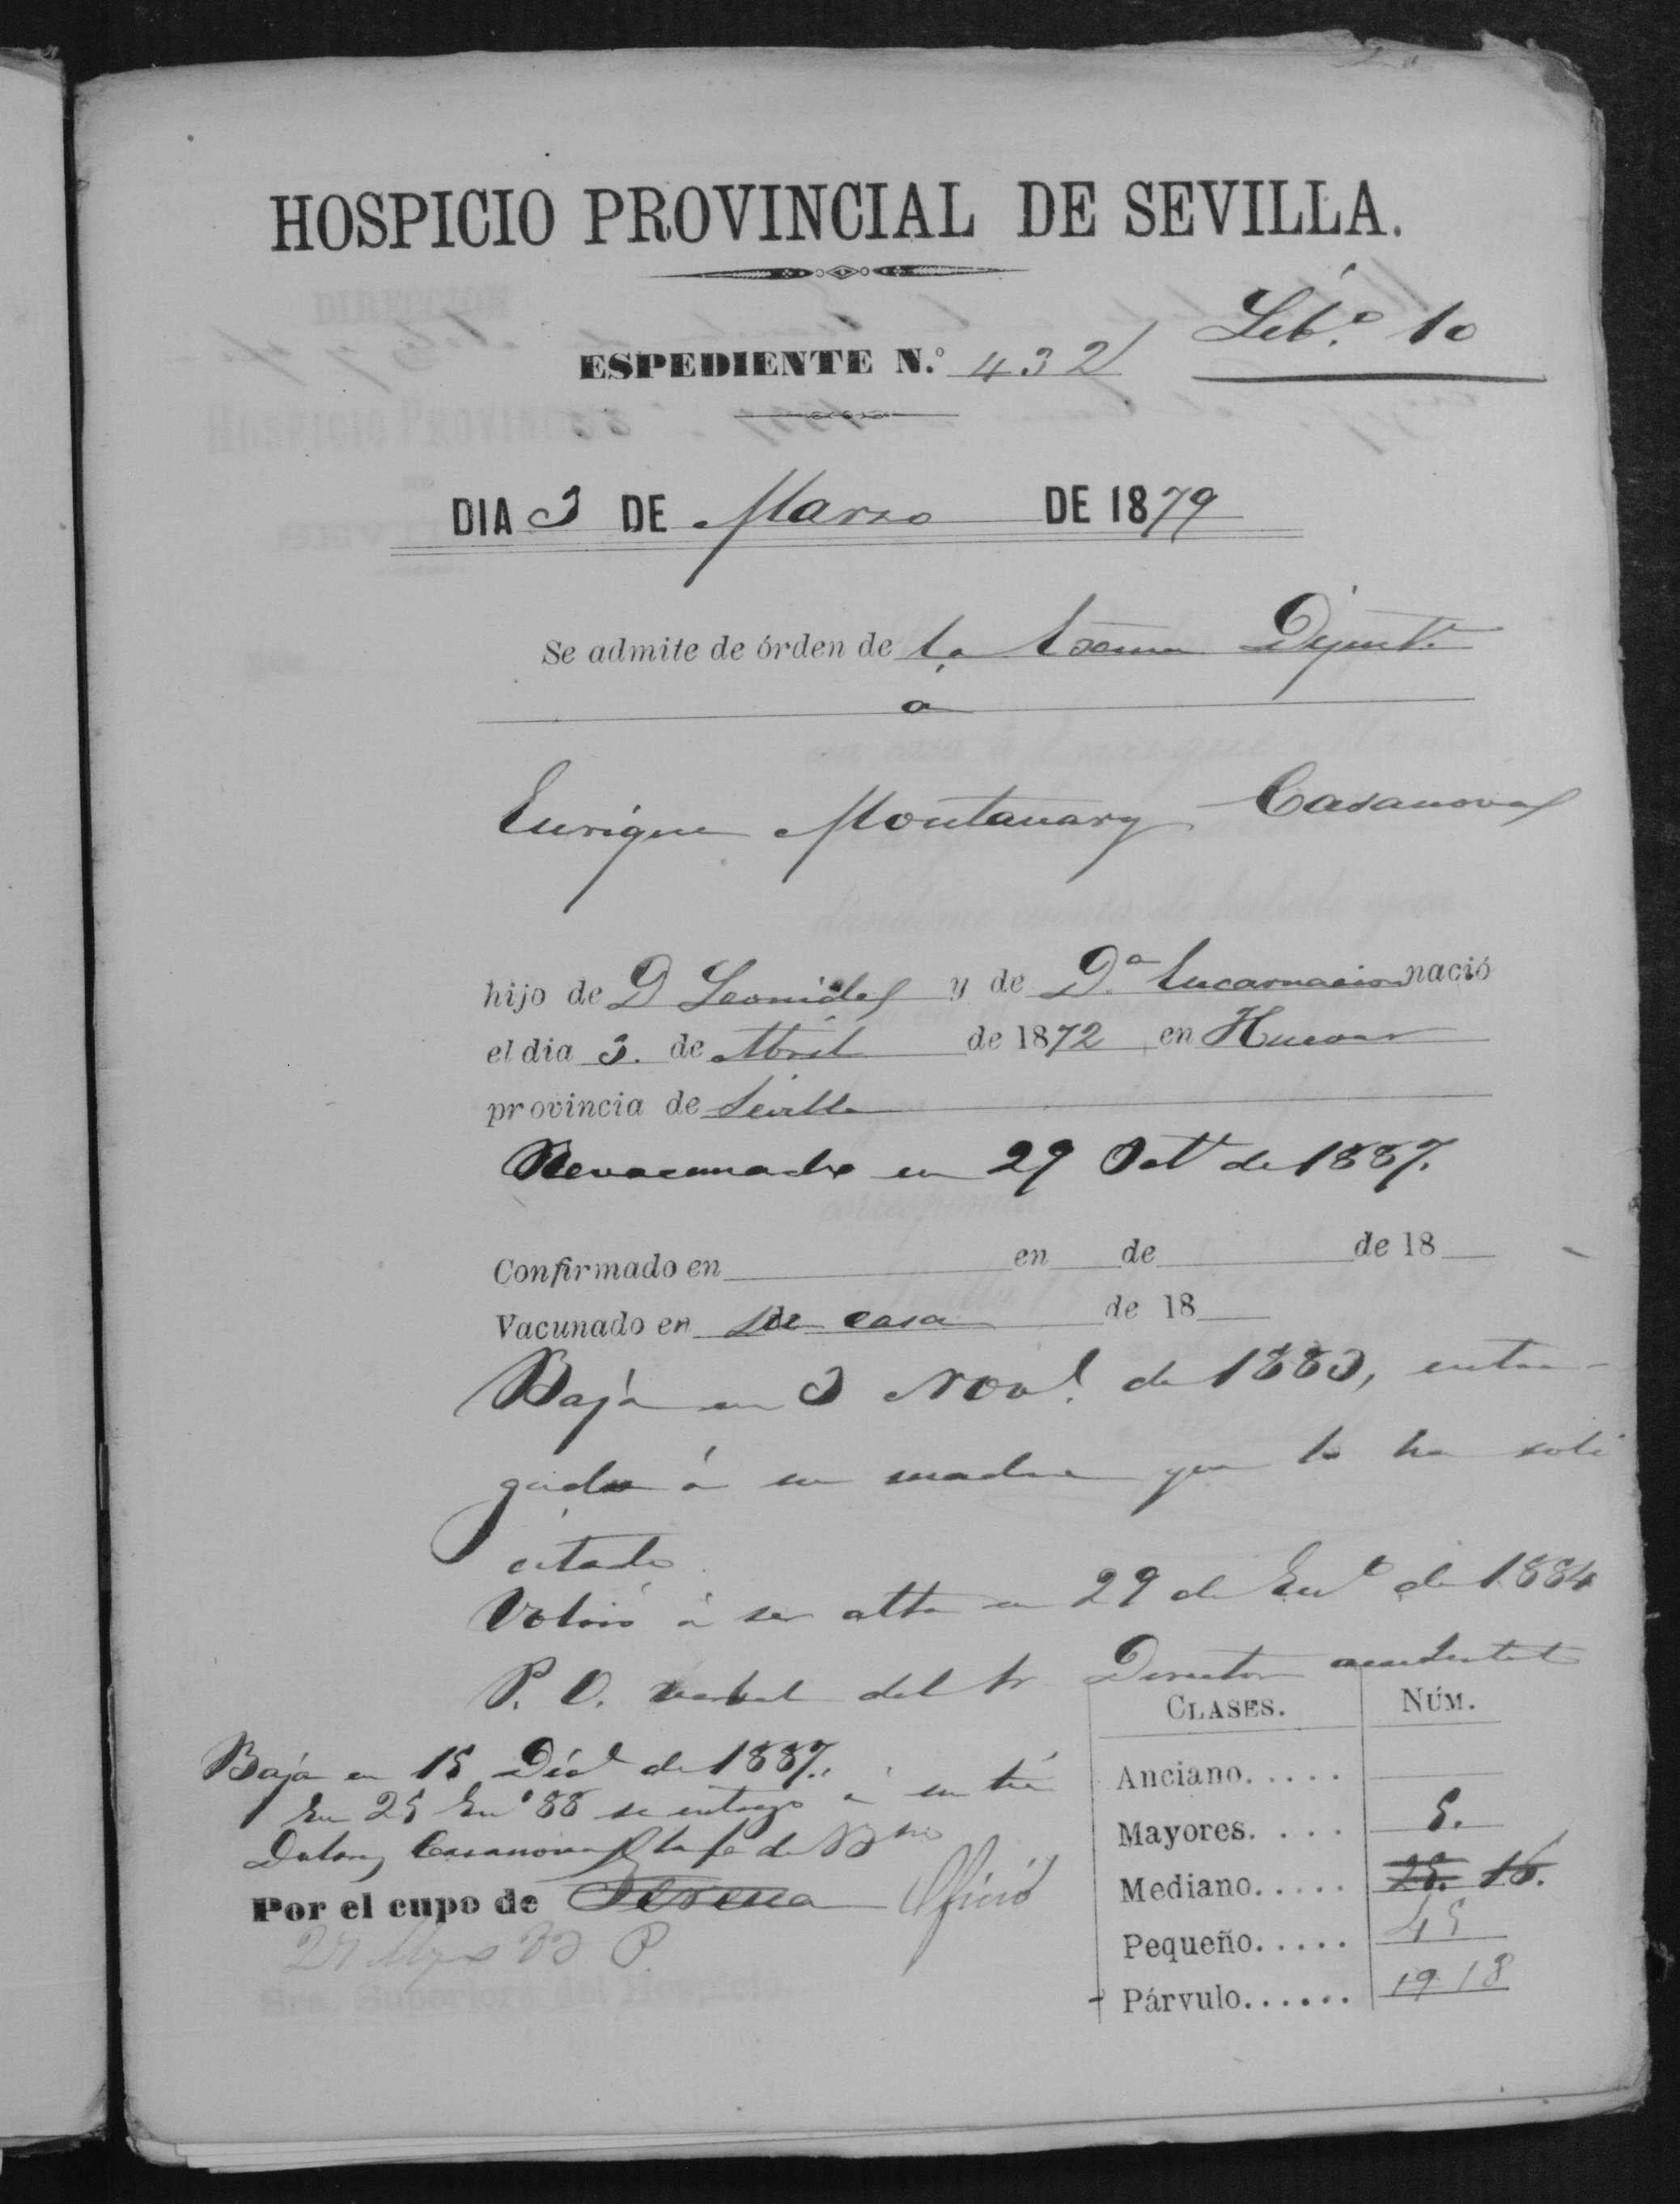 HOSPICIO PROVINCIAL DE SEVILLA.
Lib.º 10
ESPEDIENTE N.º 432
DIA 3 DE Marzo DE 1879
Se admite de órden de la Exema Diput.n
a
Enrique Montanary Casanova
hijo de D Leonides y de D.a Encarnacion nació
el dia 3. de Abril de 1872 en Huevar
provincia de Sevilla
Revacunado en 29 Oct.e de 1887.
Confirmado en en de de 18
Vacunado en de casa de 18
Baja en 3 Nov.e de 1883, entre-
gado á su madre que lo ha soli
citado.
Volvió á ser alta en 29 de En.o de 1884
P. O. verbal del Sr Director accidental
CLASES. NÚM.
Baja en 15 Dic.e de 1887.
Anciano.....
En 25 En.o 88 se entregó á su tia
Mayores.... 5.
Casanova
Mediano..... 25. 16.
Por el cupo de Oficio
Pequeño..... 45
Párvulo...... 19 18